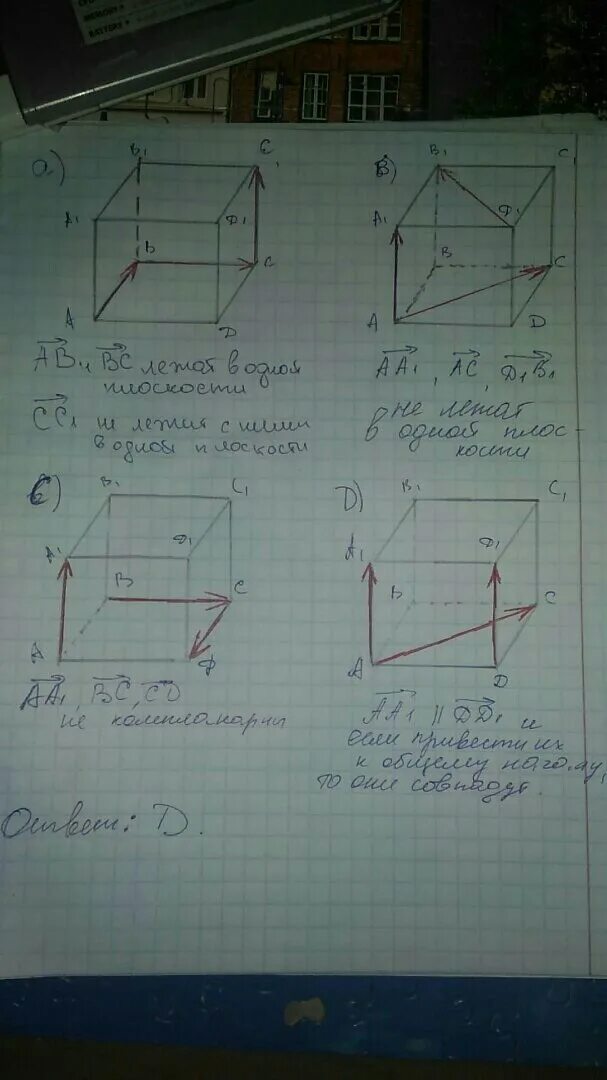 MEMORY+
BATTERY+
а)
B1
C1
A1
D1
B
C
A
D
AB, BC лежат в одной
плоскости
CC1 не лежит с ними
в одной плоскости
B)
B1
C1
A1
D1
B
C
A
D
AA1, AC, D1B1
не лежат
в одной плос-
кости
C)
B1
C1
A1
D1
B
C
A
D
AA1, BC, CD
не компланарны
D)
B1
C1
A1
D1
B
C
A
D
AA1 || DD1 и
если привести их
к общему началу,
то они совпадут.
Ответ: D.